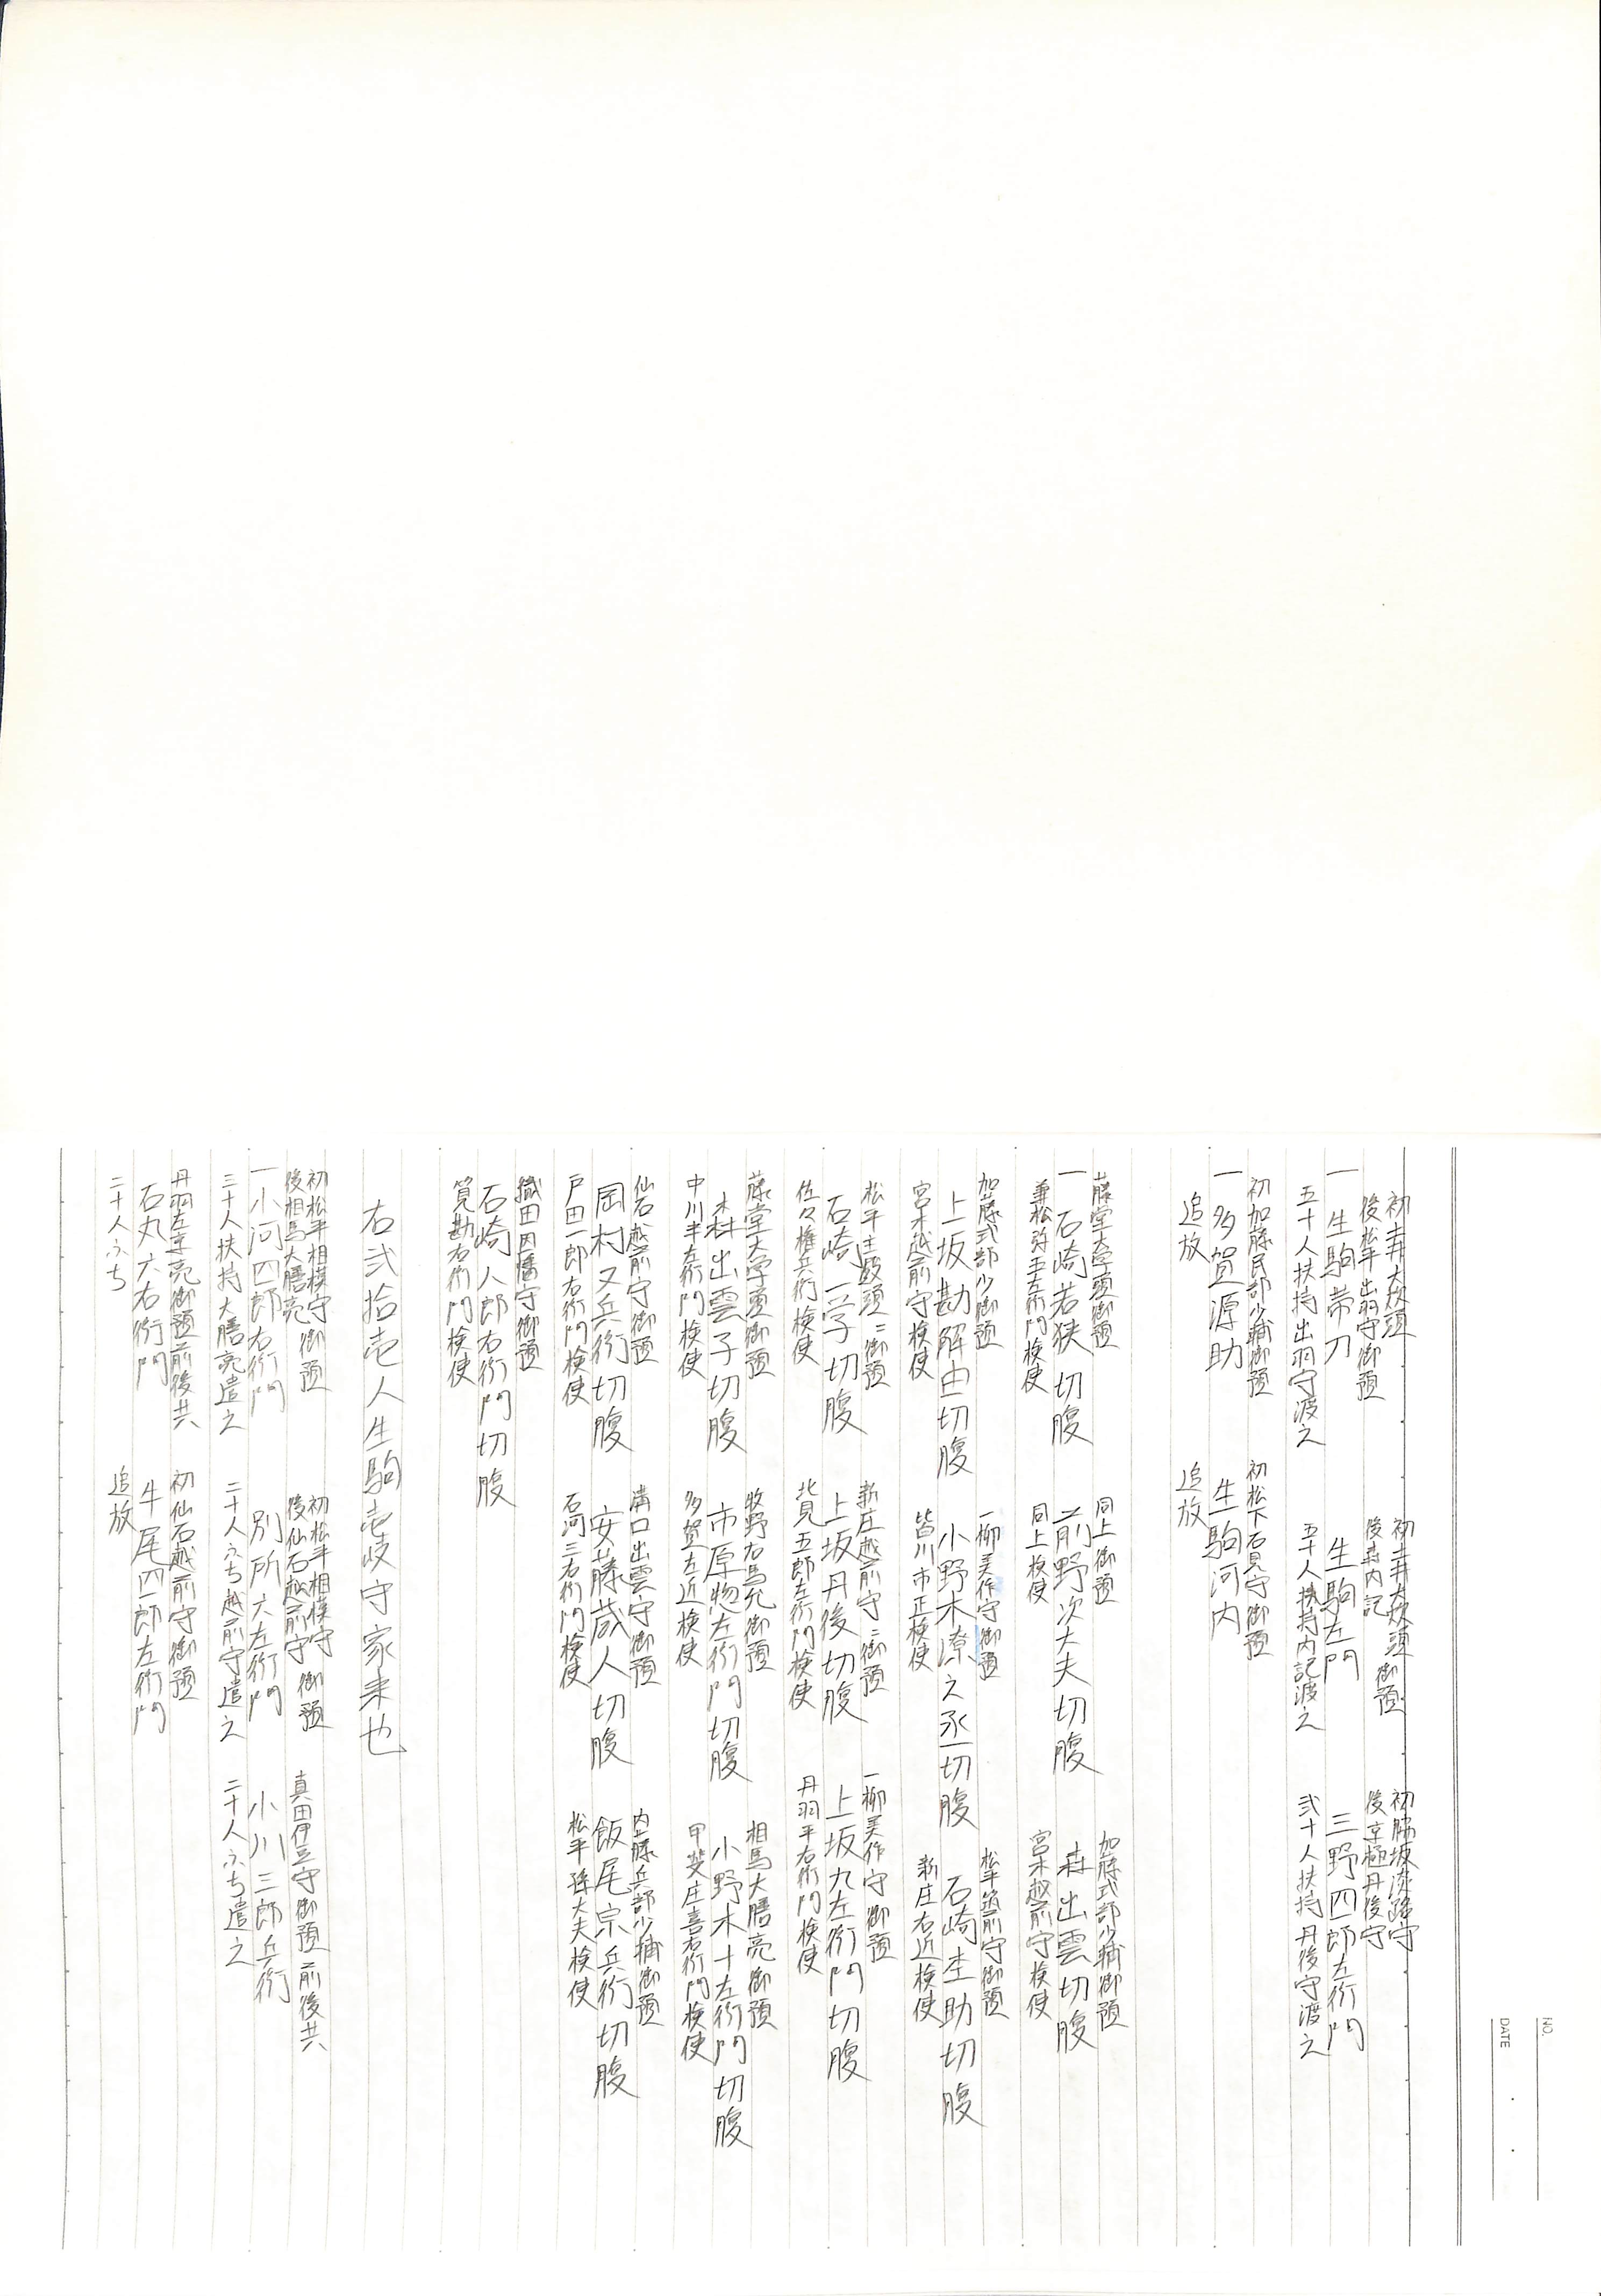 初土井大炊頭
後松平出羽守御預
一 生駒帯刀
五十人扶持出羽守渡之
初土井大炊頭 御預
後森内記
生駒左門
五十人扶持内記渡之
初脇坂淡路守
後京極丹後守
三野四郎左衛門
弐十人扶持 丹後守渡之
初加藤民部少輔御預
一 多賀源助
追放
初松下石見守御預
生駒河内
追放
藤堂大学頭御預
一 石崎若狭切腹
兼松弥五左衛門検使
同上御預
前野次大夫切腹
同上検使
加藤式部少輔御預
森出雲切腹
宮木越前守検使
加藤式部少御預
上坂勘解由切腹
宮木越前守検使
一柳美作守御預
小野木潦之丞切腹
皆川市正検使
松平筑前守御預
石崎主助切腹
新庄右近検使
松平主殿頭ニ御預
石崎一学切腹
佐々権兵衛検使
新庄越前守ニ御預
上坂丹後切腹
北見五郎左衛門検使
一柳美作守御預
上坂九左衛門切腹
丹羽平右衛門検使
藤堂大学頭御預
森出雲子切腹
中川半左衛門検使
牧野右馬允御預
市原惣左衛門切腹
多賀左近検使
相馬大膳亮御預
小野木十左衛門切腹
甲斐庄喜右衛門検使
仙石越前守御預
岡村又兵衛切腹
戸田一郎右衛門検使
溝口出雲守御預
安藤蔵人切腹
石河三右衛門検使
内藤兵部少輔御預
飯尾宗兵衛切腹
松平孫大夫検使
織田因幡守御預
石崎八郎右衛門切腹
筧勘右衛門検使
右弐拾壱人生駒壱岐守家来也
初松平相模守 御預
後相馬大膳亮
一 小河四郎右衛門
三十人扶持大膳亮遣之
初松平相模守 御預
後仙石越前守
別所大左衛門
二十人ふち越前守遣之
真田伊豆守御預前後共
小川三郎兵衛
二十人ふち遣之
丹羽左京亮御預前後共
石丸六右衛門
二十人ふち
初仙石越前守御預
牛尾四郎左衛門
追放
NO.
DATE